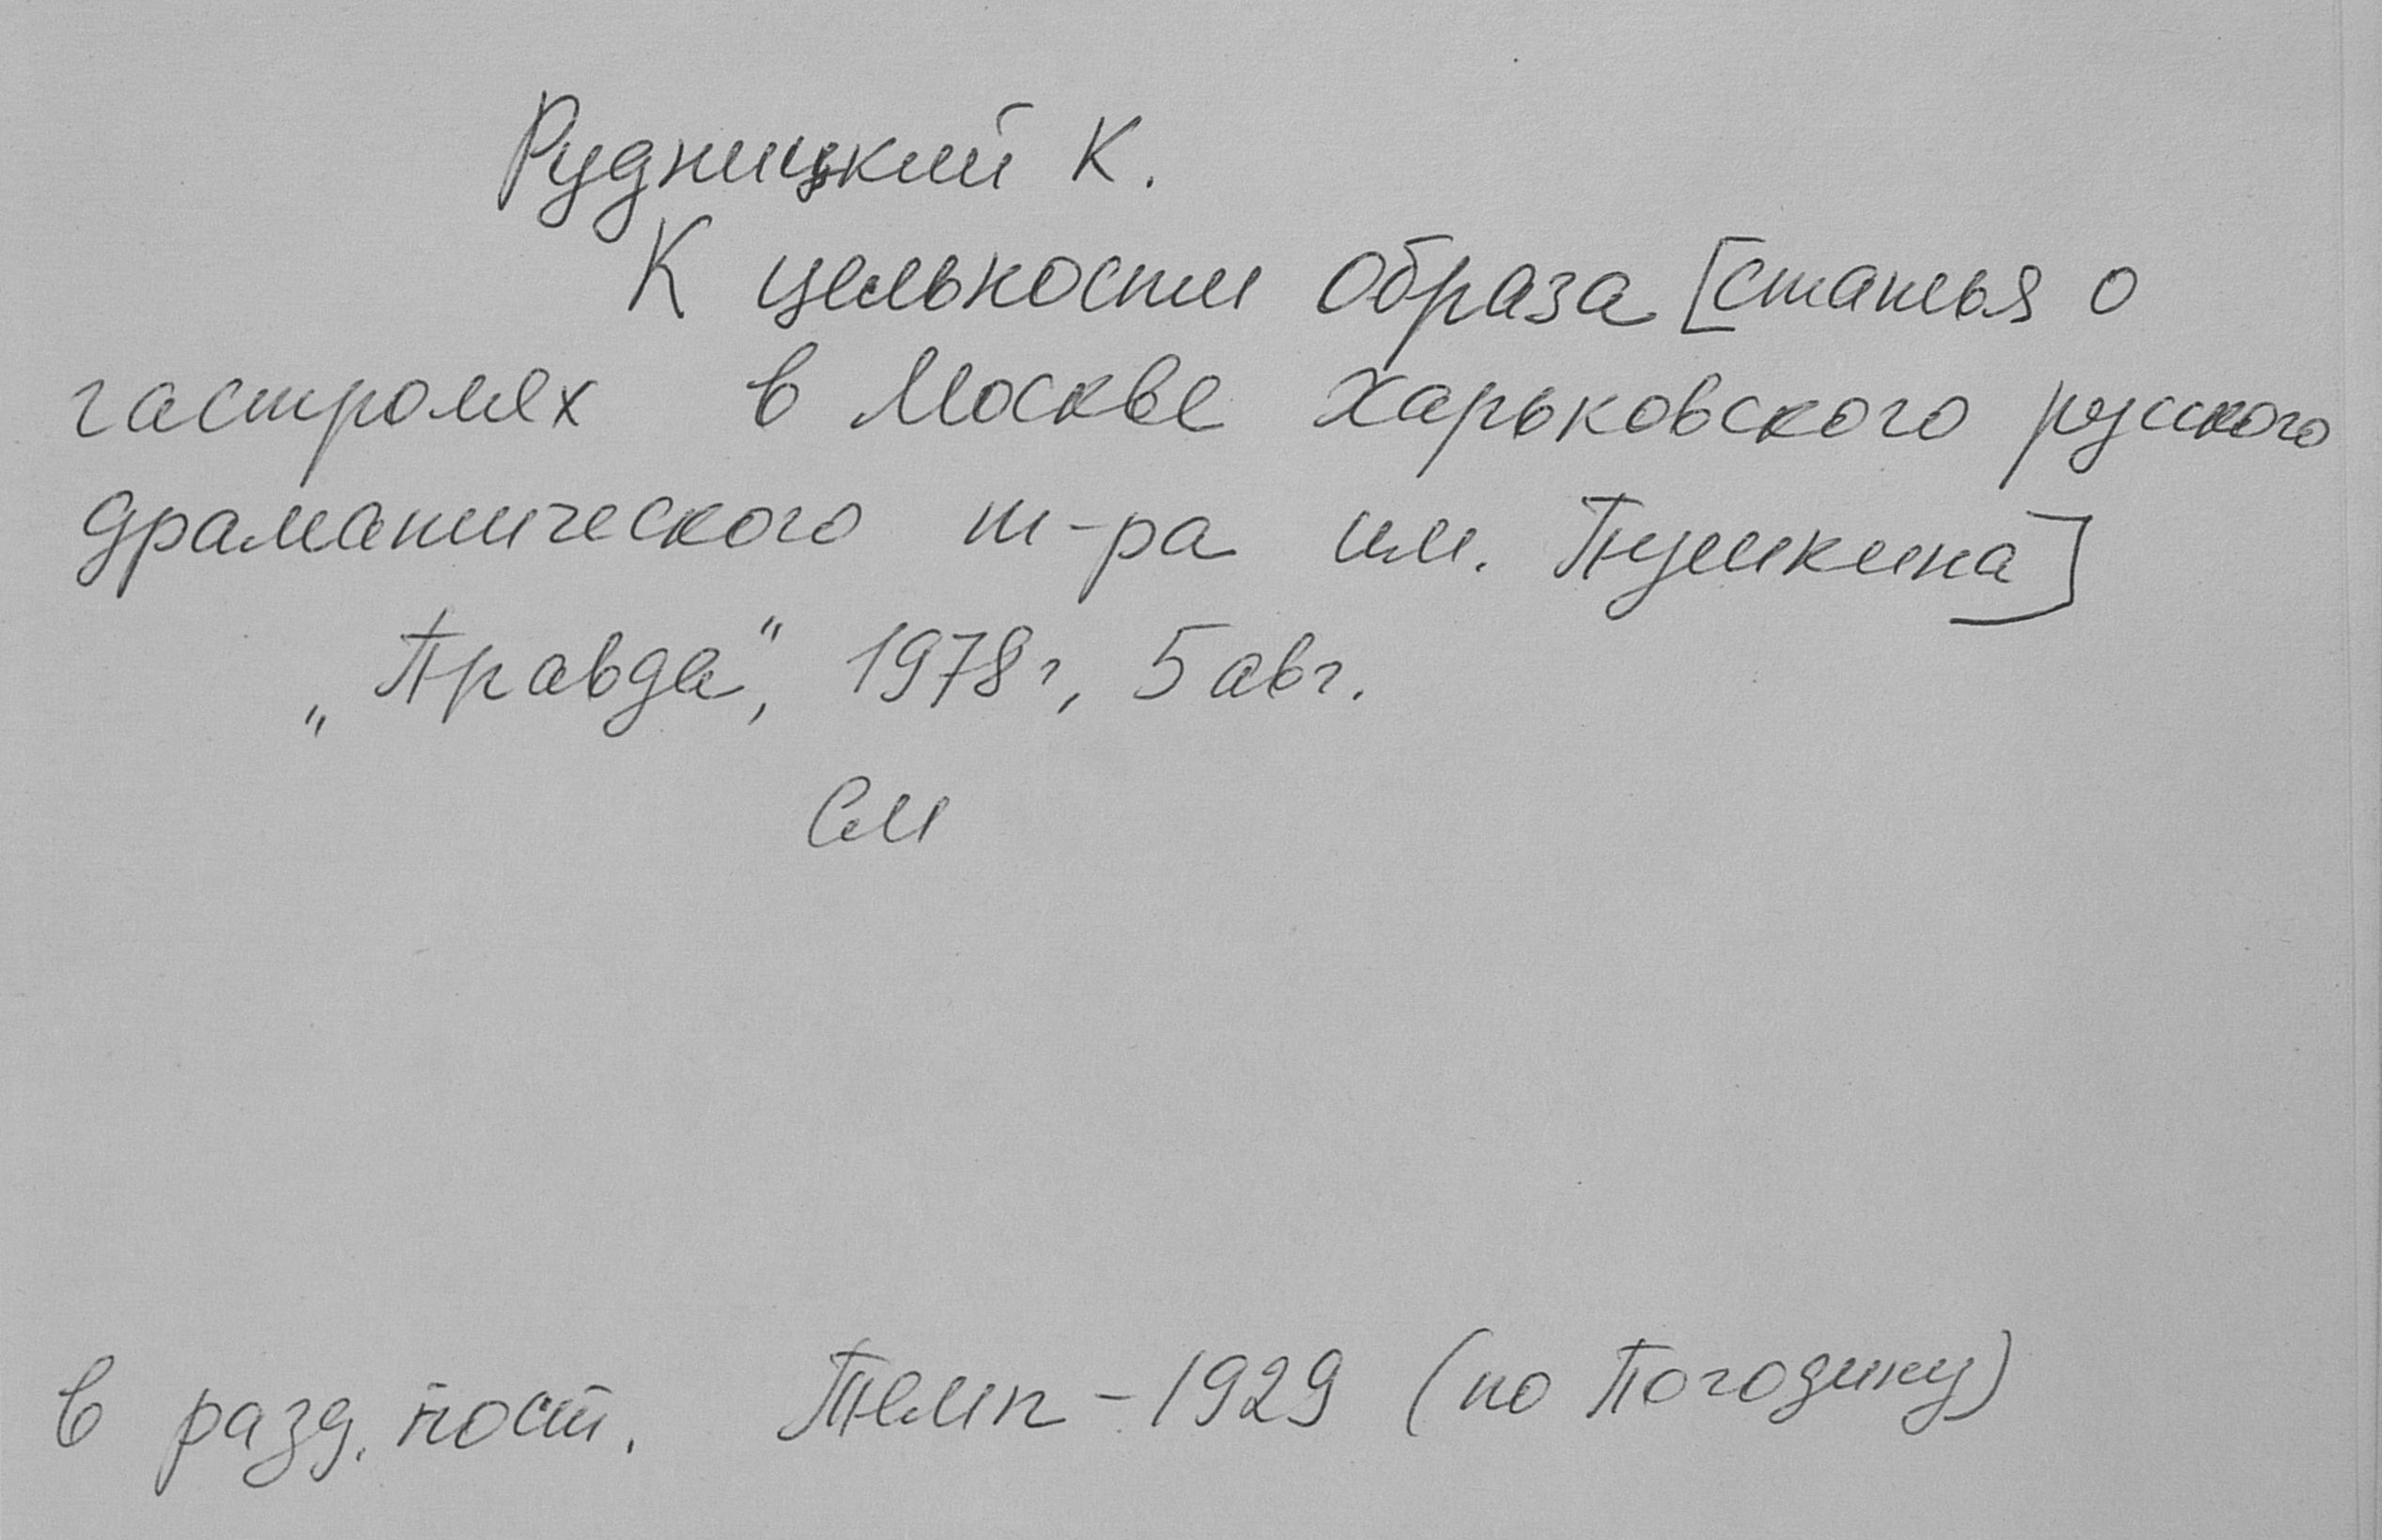 Рудницкий К.
К цельности образа [статья о
гастролях в Москве Харьковского русского
драматического т-ра им. Пушкина]
„Правда", 1978 г, 5 авг.
См
в разд. пост. Темп - 1929 (по Погодину)